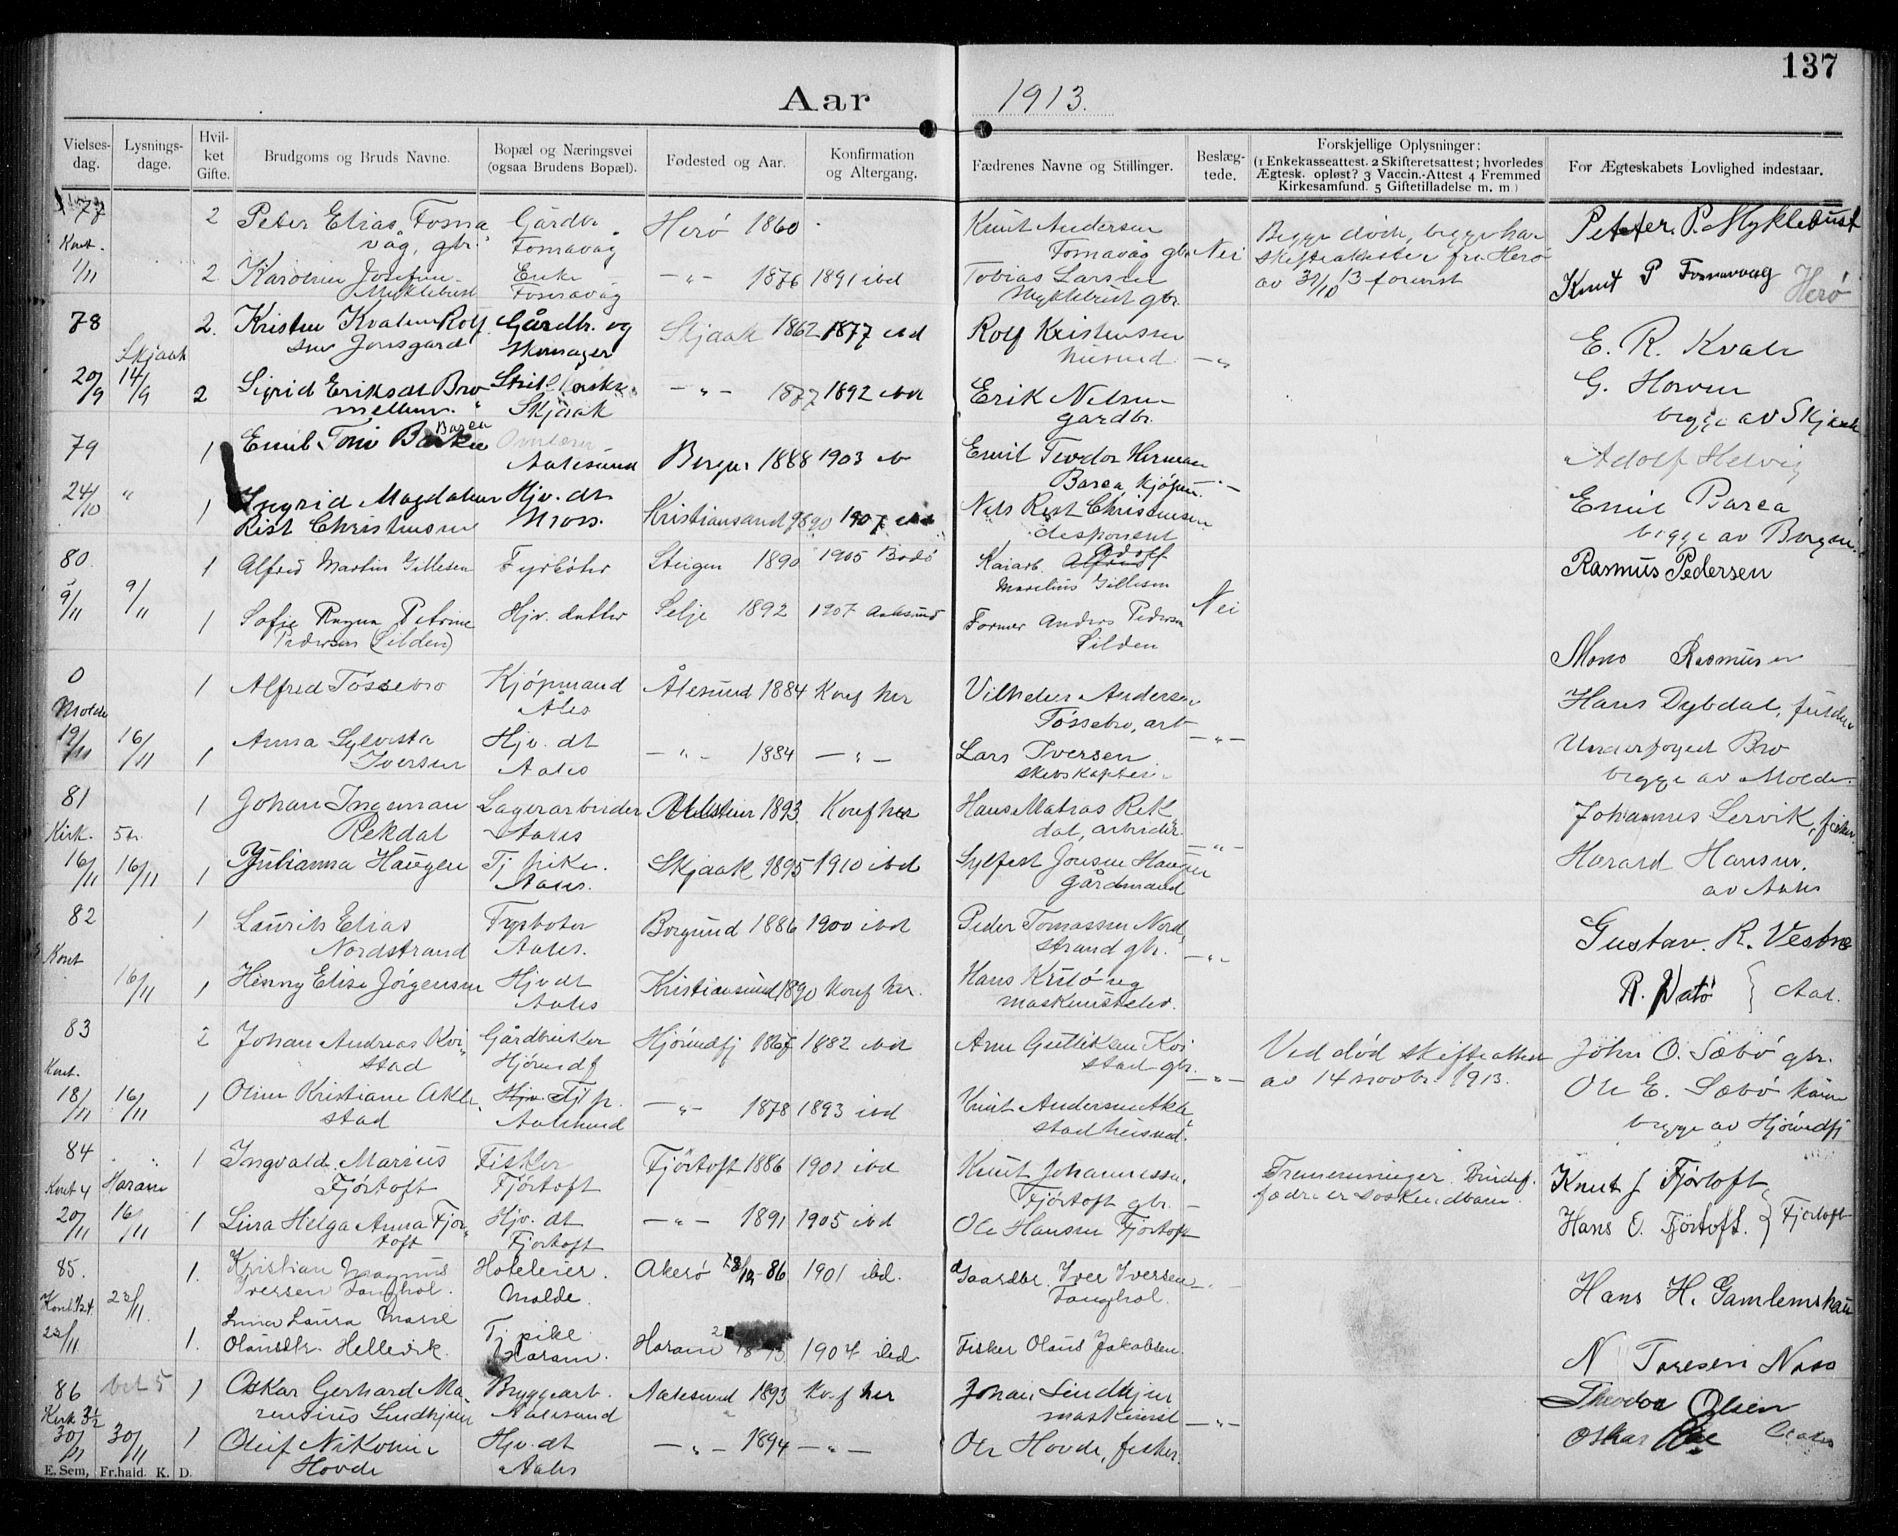 137
Aar 1913.
Vielsesdag. Lysningsdage. Hvilket Gifte. Brudgoms og Bruds Navne. Bopæl og Næringsvei (ogsaa Brudens Bopæl). Fødested og Aar. Konfirmation og Altergang. Fædrenes Navne og Stillinger. Beslægtede. Forskjellige Oplysninger: (1 Enkekasseattest. 2 Skifteretsattest; hvorledes Ægtesk. opløst? 3 Vaccin.-Attest 4 Fremmed Kirkesamfund. 5 Giftetilladelse m. m.) For Ægteskabets Lovlighed indestaar.
77 2 Peter Elias Fosna Gårdbr. Herø 1860 Knut Andersen Begge død, begge har Petter. P. Myklebust
Kont. våg, gbr. Fosnavåg Fosnavåg gbr. Nei skifteattester fra Herø
1/11 2 Karoline Josefine Enke -"- 1876 1891 ibd Tobias Larsen av 31/10 13 forevist Knut P Fosnavaag Herø
Myklebust Fosnavåg Myklebust gbr.
78 2. Kristen Kvalen Rolf Gårdbr. og Skjaak 1862 1877 ibd Rolf Kristensen E. R. Kvale
Skjaak sen Jonsgard skomager husmd. -"-
20/9 14/9 2 Sigrid Eriksdt Bro -"- 1877 1892 ibd Erik Nelsen G. Horven
mellem. Skjaak gardbr. begge av Skjaak
79 1 Emil Toni Barca Aalesund Bergen 1888 1903 ib Emil Teodor Herman Adolf Helvig
Barca kjøpm. -"-
24/10 " 1 Ingrid Magdalene Hjv. dt Kristiansand 1890 1907 ibd Nils Rist Christensen Emil Barca
Rist Christensen Moss. disponent begge av Bergen.
80 1 Alfred Martin Gillesen Fyrbøter Steigen 1890 1905 Bodø Kaiarb. Adolf Rasmus Pedersen
9/11 9/11 Marelius Gillesen
1 Sofie Ragna Petrine Hjv. datter Selje 1892 1907 Aalesund Former Anders Pedersen Nei
Pedersen (Silden) Silden Mons Rasmusen
0 1 Alfred Tøssebro Kjøpmand Ålesund 1884 Konf her Vilhelm Andersen Hans Dybdal,
Molde Ales Tøssebro, arb -"-
19/11 16/11 1 Anna Sylvesta Hjv. dt -"- 1884 -"- Lars Iversen Underfoged Bro
Iversen Aales skibskaptein begge av Molde.
81 1 Johan Ingeman Lagerarbeider 1893 Konf her Hans Matias Rek Johannes Lervik, fisker
Kirk. 5t. Rekdal Aales dal, arbeider -"-
16/11 16/11 1 Julianna Haugen Tj. pike. Skjaak 1895 1910 ibd Sylfest Jonsen Haugen Harard Hansen.
Aales. gårdmand av Aales
82 1 Laurits Elias Fyrbøter Borgund 1886 1900 ibd Peder Tomassen Nord Gustav. R. Vestre
Kont Nordstrand Aales. strand gbr. -"-
16/11 1 Henny Elise Jørgensen Hjv dt Kristiansund 1890 Konf her. Hans R. Vatø } Aal.
Aales
83 2 Johan Andreas Kvi Gårdbruker Hjørundfj 1867 1882 ibd Arne Gullikan Kvi Ved død skifteattest John O. Sæbø gbr.
Kont. stad Hjørundfj stad gbr. -"- av 14 novbr. 1913.
18/11 16/11 1 Oline Kristiane Akle Tj p. -"- 1878 1893 ibd Knut Andersen Akle Ole E. Sæbø
stad Aalesund stad husmd. begge av Hjørundfj
84 1 Ingvald Marius Fisker Fjørtoft 1886 1901 ibd Knut Johannessen Tremenninger. Brudef. Knut J Fjørtoft
Kont 4 Haram Fjørtoft Fjørtoft Fjørtoft gbr. fædre er søskendbarn. } Fjørtoft
20/11 16/11 1 Lina Helga Anna Fjør Hjv. dt -"- 1891 1905 ibd Ole Hansen Fjørtoft Hans O. Fjørtoft.
toft Fjørtoft
85. 1. Kristian Magnus Hoteleier. Akerø 86 1901 ibd. Gaardbr. Iver Iversen Hans H. Gamlemshaug
Iversen Tanghol. Molde. Tanghol.
23/11 23/11 1. Laura Marie Tj pike Haram 1904 ibd Fisker Olaus Jakobsen.
Olausdtr. Hellevik. Haram. N Toresen Naas
86 bet 5 1 Oskar Gerhard Ma Bryggearb. Aalesund 1893 Konf her Johan Lindkjen Theodor Olsen
Kirk 3½ rentius Lindkjen Aalesund maskinist -"-
30/11 30/11 1 Oluf Nikoline Hjv. dt -"- 1894 -"- Ole Hovde, fisker. Oskar
Hovde Aales
E. Sem, Fr.hald. K. D.